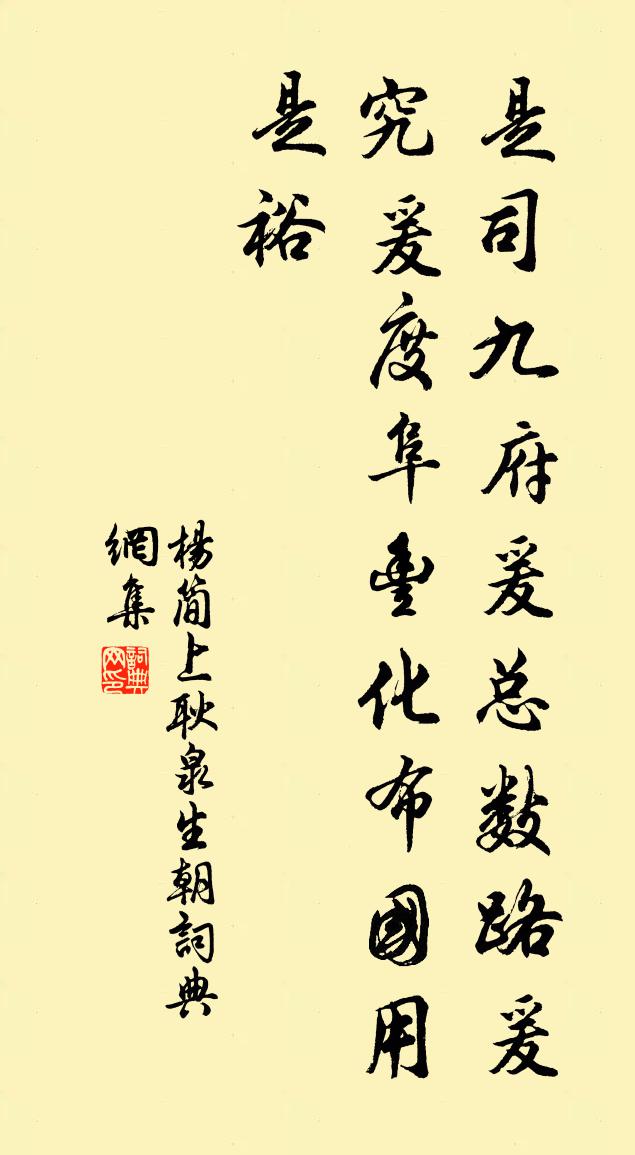 是司九府爰总数路爰
究爰度阜豊化布國用
是裕
楊简上耿泉生朝詞典
網集
詞典
网印